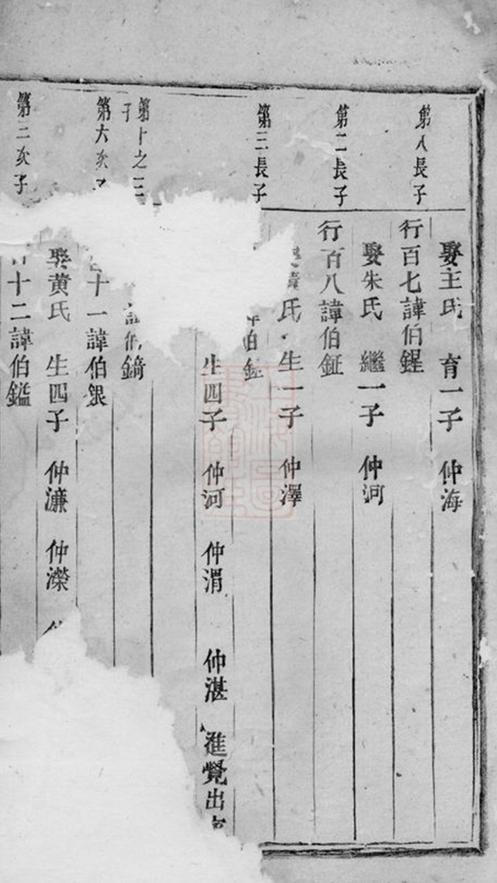 第八長子
娶王氏 育一子 仲海
行百七諱伯鍟
第二長子
娶朱氏 繼一子 仲河
行百八諱伯鉦
第三長子
氏 生一子 仲澤
伯
生四子 仲河 仲渭 仲湛 進覺出
第十之三子
諱伯錡
第六次子
十一諱伯銀
娶黃氏 生四子 仲濂 仲濼
第二次子
十二諱伯鎰